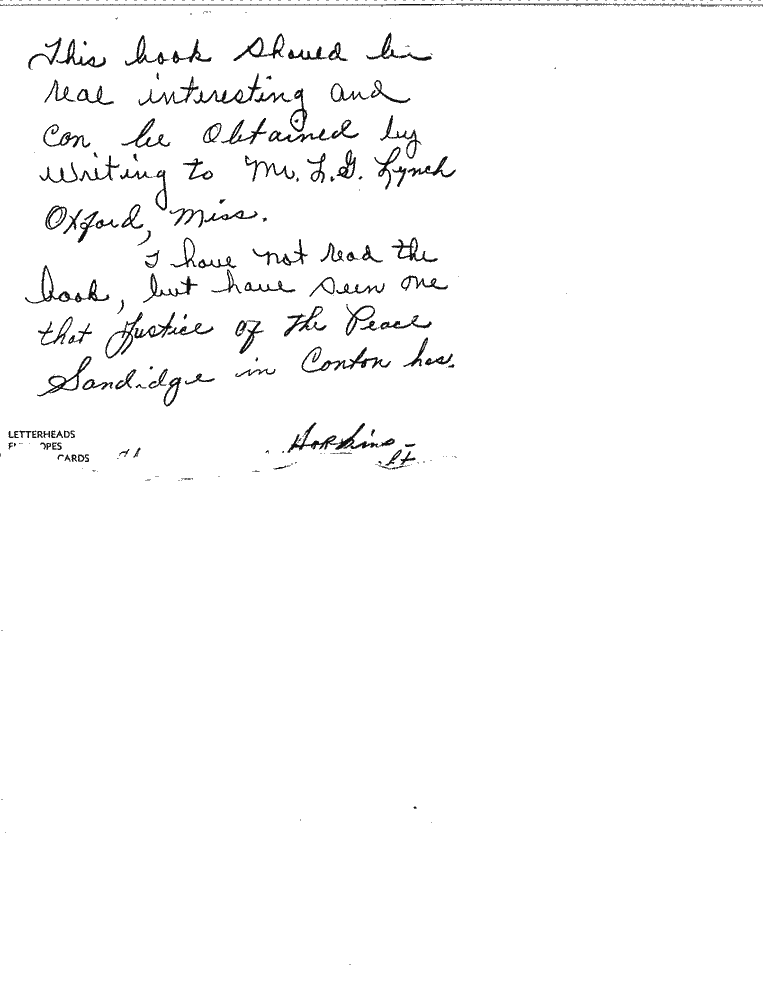 This book should be
real interesting and
can be obtained by
writing to Mr. L.G. Lynch
Oxford, Miss.
I have not read the
book, but have seen one
that Justice of the Peace
Sandidge in Canton has.
LETTERHEADS
CARDS
Hopkins -